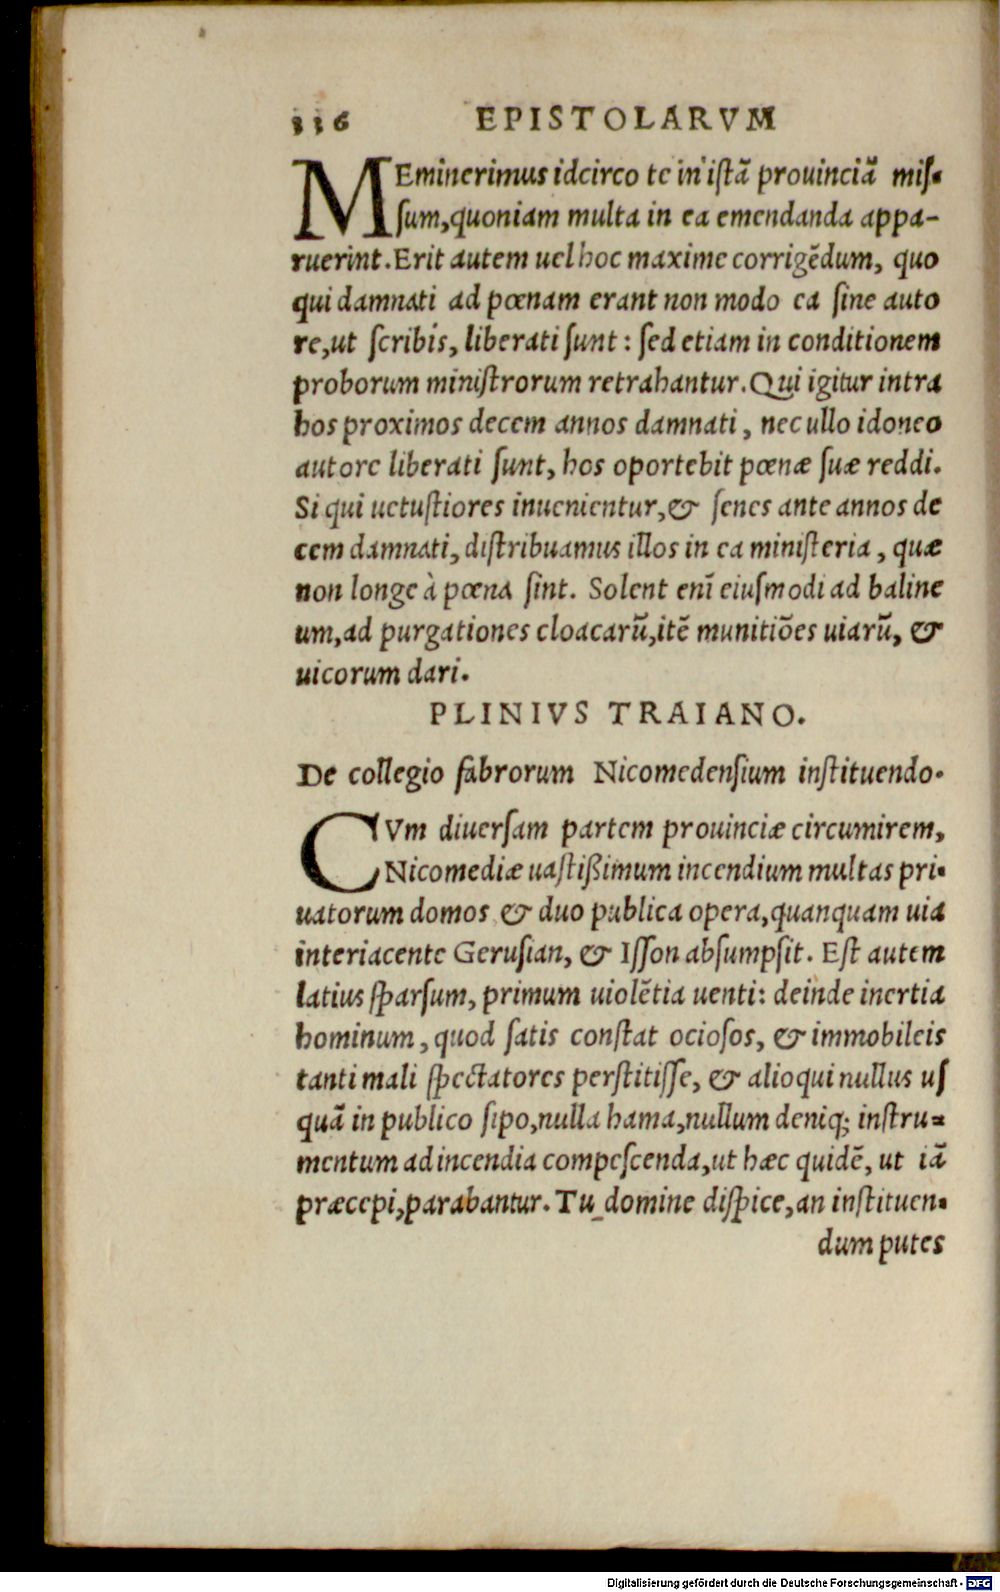 116 EPISTOLARVM
MEminerimus idcirco te in istã prouinciã miſ-
ſum, quoniam multa in ea emendanda appa-
ruerint. Erit autem uel hoc maxime corrigẽdum, quo
qui damnati ad pœnam erant non modo ea ſine auto
re, ut ſcribis, liberati ſunt: ſed etiam in conditionem
proborum miniſtrorum retrahantur. Qui igitur intra
hos proximos decem annos damnati, nec ullo idoneo
autore liberati ſunt, hos oportebit pœnæ ſuæ reddi.
Si qui uetuſtiores inuenientur, & ſenes ante annos de
cem damnati, diſtribuamus illos in ea miniſteria, quæ
non longe à pœna ſint. Solent enĩ eiuſmodi ad baline
um, ad purgationes cloacarũ, itẽ munitiões uiarũ, &
uicorum dari.
PLINIVS TRAIANO.
De collegio fabrorum Nicomedenſium inſtituendo.
CVm diuerſam partem prouinciæ circumirem,
Nicomediæ uaſtißimum incendium multas pri-
uatorum domos & duo publica opera, quanquam uia
interiacente Geruſian, & Iſſon abſumpſit. Eſt autem
latius ſparſum, primum uiolẽtia uenti: deinde inertia
hominum, quod ſatis conſtat ocioſos, & immobileis
tanti mali ſpectatores perſtitiſſe, & alioqui nullus uſ
quã in publico ſipo, nulla hama, nullum deniq; inſtru-
mentum ad incendia compeſcenda, ut hæc quidẽ, ut iã
præcepi, parabantur. Tu domine diſpice, an inſtituen-
dum putes
Digitalisierung gefördert durch die Deutsche Forschungsgemeinschaft - DFG